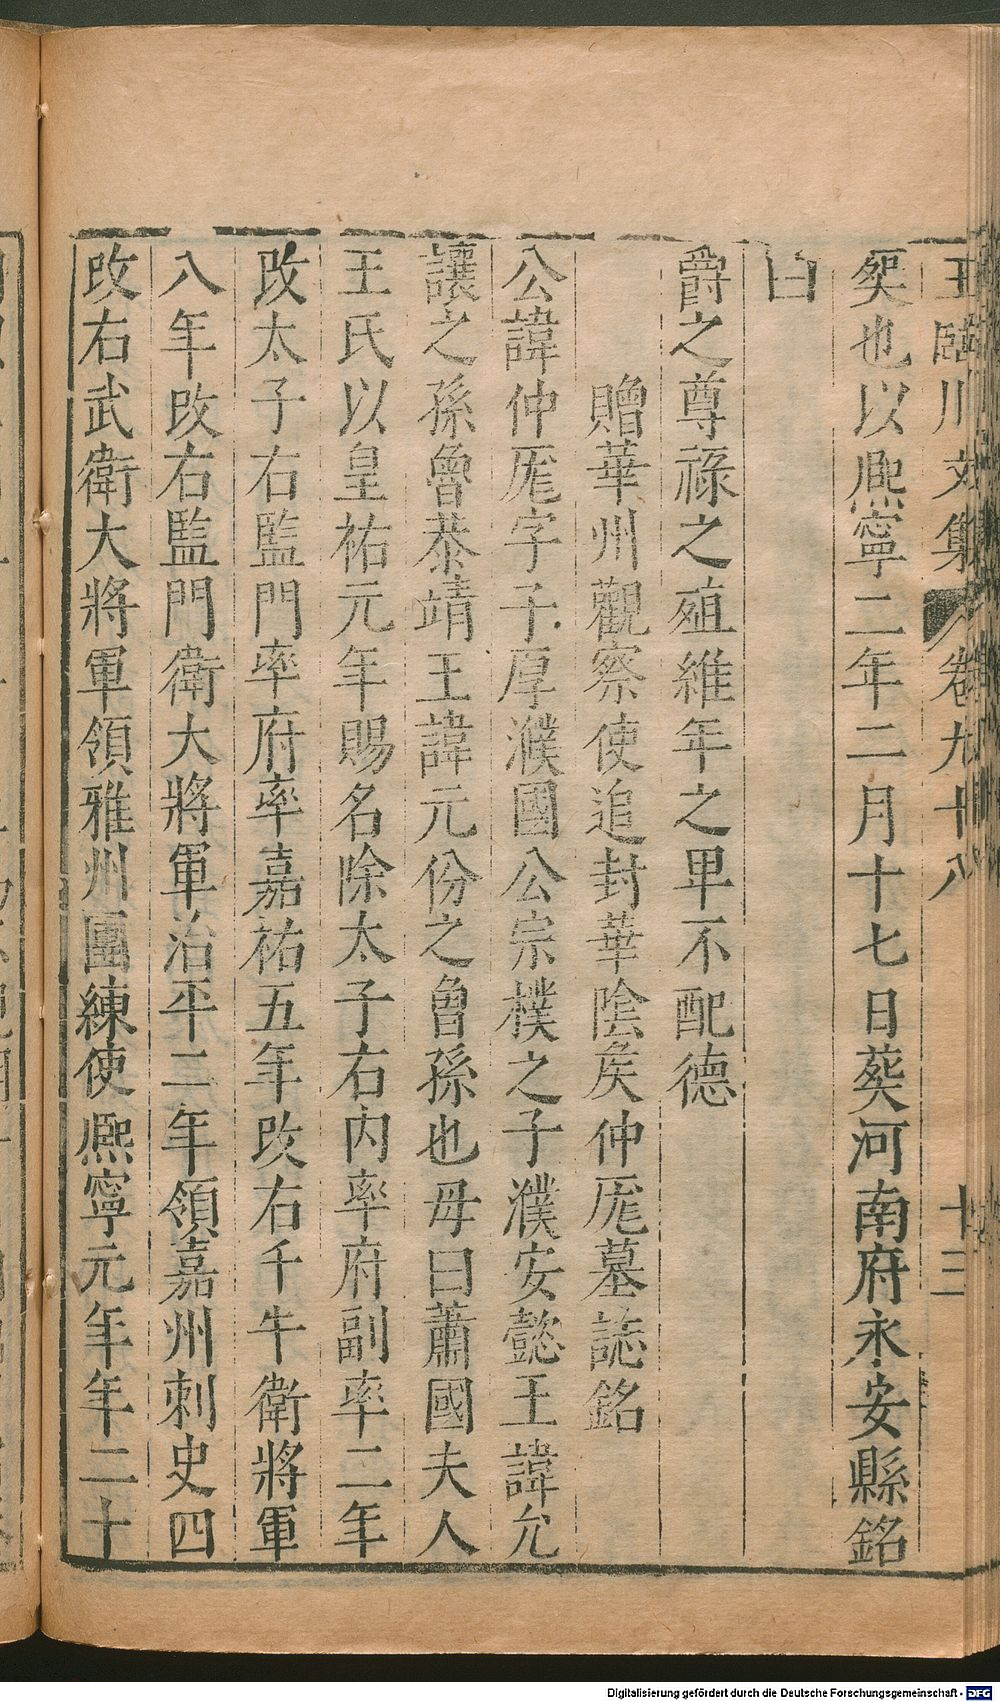 王臨川文集 卷九十八 十三
矣也以熈寧二年二月十七日葬河南府永安縣銘
曰
爵之尊祿之殖維年之畀不配德
贈華州觀察使追封華陰矦仲厖墓誌銘
公諱仲厖字子厚濮國公宗樸之子濮安懿王諱允
讓之孫魯恭靖王諱元份之曾孫也母曰蕭國夫人
王氏以皇祐元年賜名除太子右內率府副率二年
改太子右監門率府率嘉祐五年改右千牛衛將軍
八年改右監門衛大將軍治平二年領嘉州刺史四
改右武衛大將軍領雅州團練使熈寧元年年二十
Digitalisierung gefördert durch die Deutsche Forschungsgemeinschaft - DFG